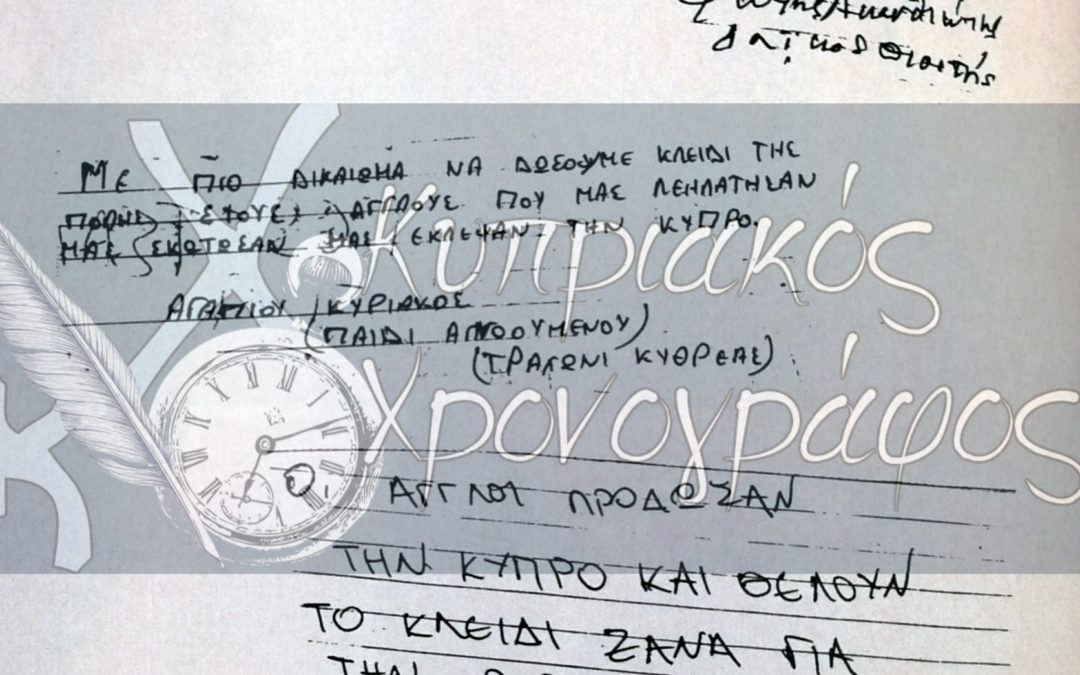 ΜΕ ΠΙΟ ΔΙΚΑΙΩΜΑ ΝΑ ΔΩΣΟΥΜΕ ΚΛΕΙΔΙ ΤΗΣ
ΠΟΛΗΣ ΣΤΟΥΣ ΑΓΓΛΟΥΣ ΠΟΥ ΜΑΣ ΛΕΗΛΑΤΗΣΑΝ
ΜΑΣ ΣΚΩΤΩΣΑΝ ΜΑΣ ΕΚΛΕΨΑΝ ΤΗΝ ΚΥΠΡΟ.
ΑΓΑΠΙΟΥ ΚΥΡΙΑΚΟΣ
(ΠΑΙΔΙ ΑΓΝΟΟΥΜΕΝΟΥ)
(ΤΡΑΧΩΝΙ ΚΥΘΡΕΑΣ)
Κυπριακός
Χρονογράφος
ΟΙ ΑΓΓΛΟΙ ΠΡΟΔΩΣΑΝ
ΤΗΝ ΚΥΠΡΟ ΚΑΙ ΘΕΛΟΥΝ
ΤΟ ΚΛΕΙΔΙ ΞΑΝΑ ΓΙΑ
ΤΗΝ